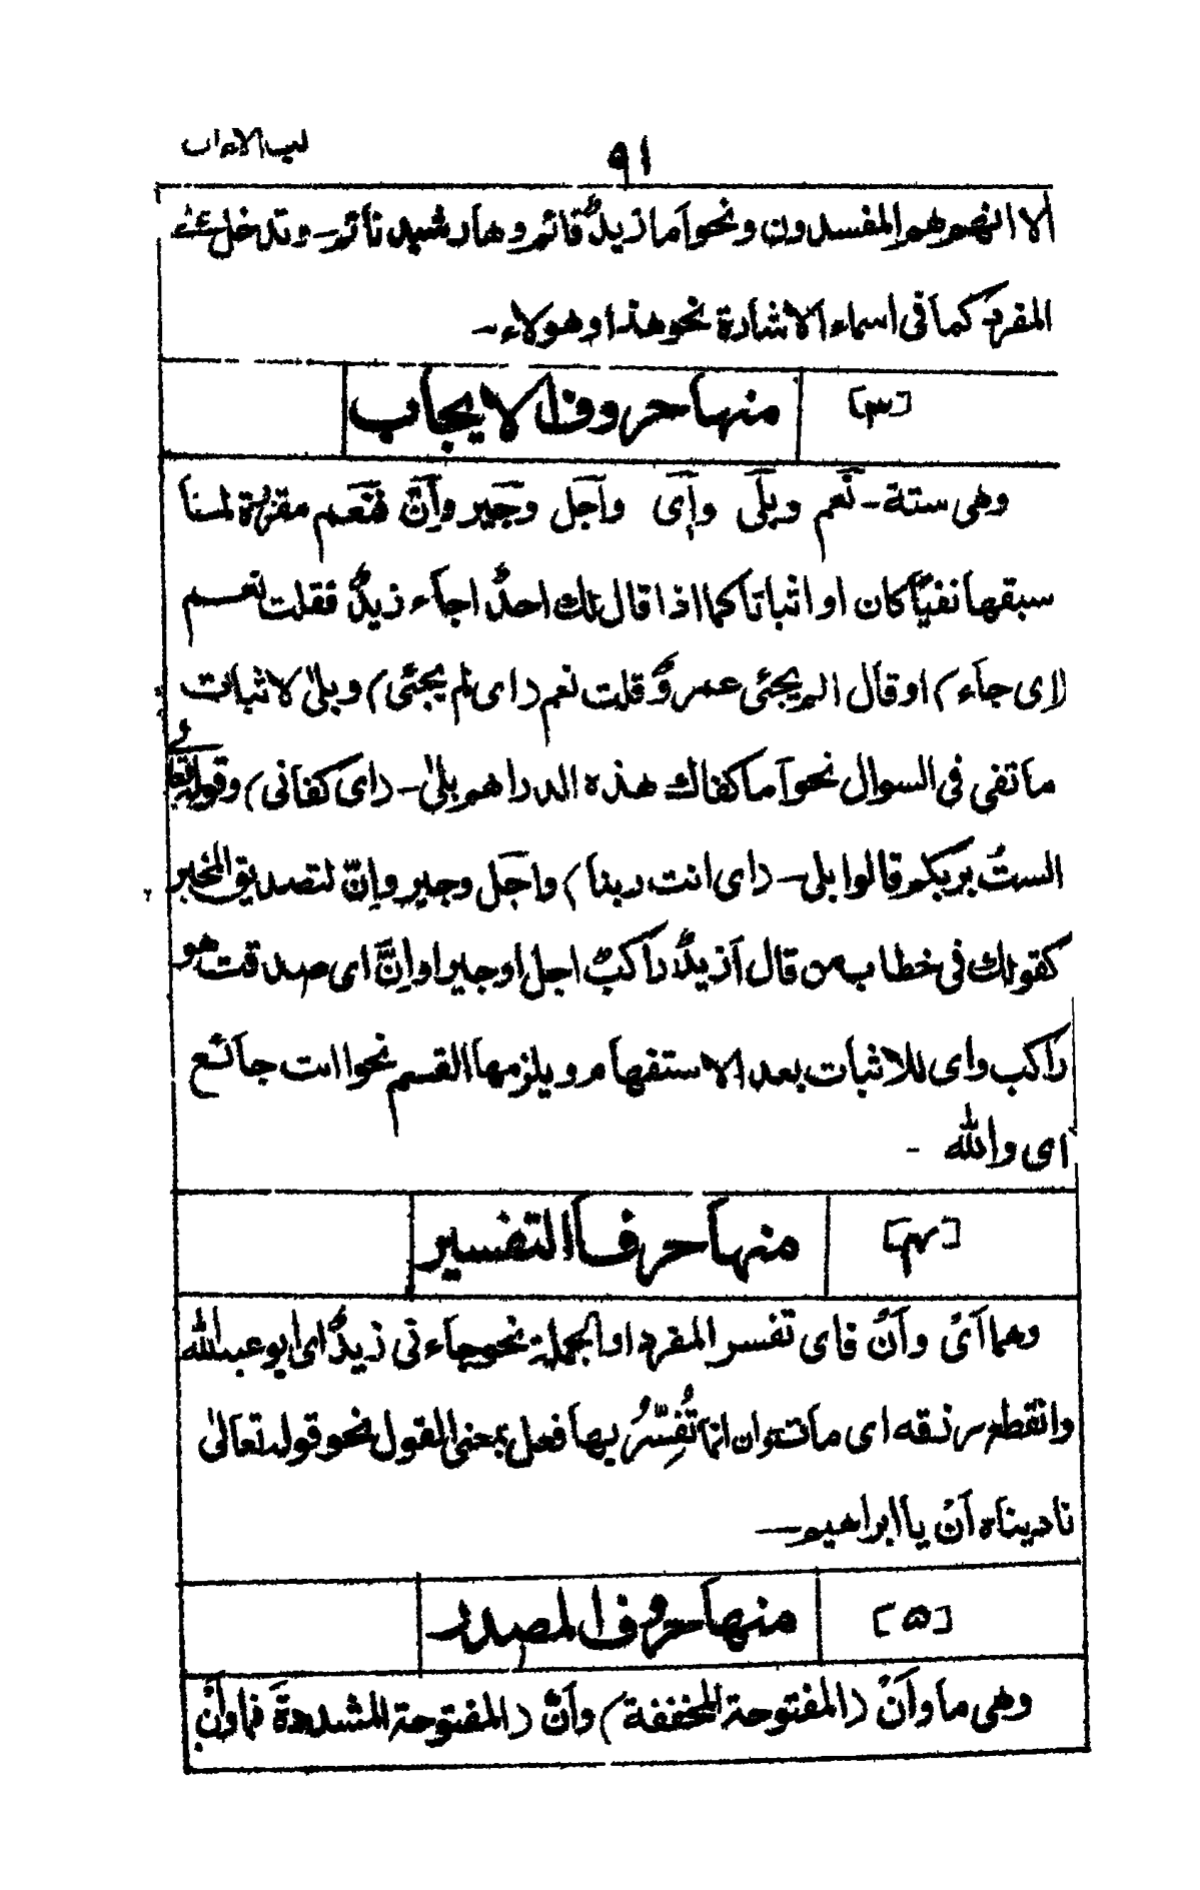 لب الاعراب
٩١
الا انهم هم المفسدون ونحو اما زيدٌ قائم وها رشيد نائم - وتدخل على
المفرد كما فى اسماء الاشارة نحو هذا وهولاء -
[٣] منها حروف الايجاب
وهى ستة - نَعم وبلَى وإَى وآجَل وجَير وإنّ فنَعَم مقررة لما
سبقها نفيًا كان او اثباتا كما اذا قال لك احدٌ اجاء زيدٌ فقلت نعم
(اى جاء) او قال الم يجئى عمروٌ قلت نعم (اى لم يجئى) وبلىٰ لاثبات
ما نفى فى السوال نحو اما كفاك هذه الدراهم بلىٰ - (اى كفانى) وقوله تعالىٰ
الستُ بربكم قالوا بلى - (اى انت ربنا) واجَل وجير وإنّ لتصديق المخبر
كقولك فى خطاب من قال أزيدٌ راكبٌ اجل او جير او إنَّ اى صدقت هو
راكب واى للاثبات بعد الاستفهام ويلزمها القسم نحو انت جائع
اى والله -
[٤] منها حرفا التفسير
وهما أىْ وأنْ فاى تفسر المفرد او الجملة نحو جاءنى زيدٌ اى ابو عبد الله
وانقطع رزقه اى مات وان انما تُفسِّرُ بها فعل بمعنى القول نحو قوله تعالىٰ
ناديناه أنْ يا ابراهيم —
[٥] منها حروف المصدر
وهى ما وأنْ (المفتوحة المخففة) وأنَّ (المفتوحة المشددة) فما وأنْ